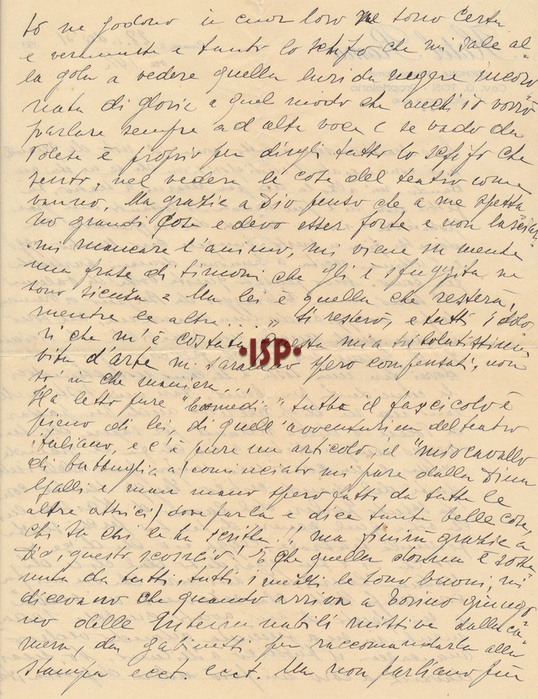 to ne godono in cuor loro ne sono certa
e veramente e tanto lo schifo che mi sale al-
la gola a vedere quella lurida negere incoro
nata di gloria a quel modo che anch'io vorrò
parlare sempre ad alta voce e se vado da
è proprio per dirgli tutto lo schifo che
sento, nel vedere le cose del teatro come
vanno. Ma grazie a Dio penso che a me spetta
no grandi cose e devo esser forte e non lascian
mi mancare l'animo, mi viene in mente
una frase di Simoni che gli è sfuggita ne
sono sicura = Ma lei è quella che resterà,
mentre le altre....." Si resterò, e tutti i dolo,
ri che m'è costata questa mia
vita d'arte mi saranno pero compensati, non
so in che maniera...!
Ha letto pure "Comedi." tutto il fascicolo è
pieno di lei, di quell'avventura del teatro
italiano, e c'è pure un articolo, il "mio cavallo
di battaglia" (cominciato mi pare dalla Dina
Galli e man mano spero fatti da tutte le
altre attrici) dove parla e dice tante belle cose,
chi sa chi le ha scritte..! ma finirà grazie a
Dio, questo sconcio! E che quella donna è soste
nuta da tutti, tutti i mezzi le sono buoni, mi
dicevano che quando arriva a Torino giungo
no delle interminabili missive dalla ca-
mera, dai gabinetti per raccomandarla alla
stampa ecct. ecct. Ma non parliamo più
ISP